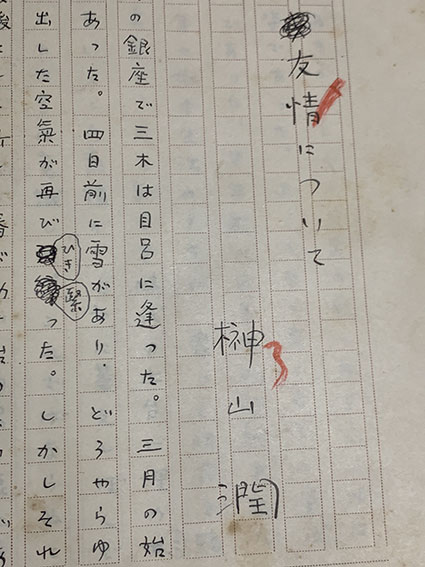 友情について
榊山潤
の銀座で三木は目呂に逢った。三月の始
あった。四日前に雪があり、どうやらゆ
出した空氣が再びひき緊った。しかしそれ